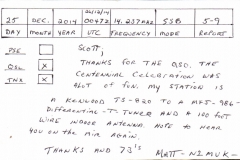 25 DEC. 2014 0047Z 14.237MHZ SSB 5-9
DAY MONTH YEAR UTC FREQUENCY MODE REPORT
PSE
QSL X
TNX X
SCOTT,
THANKS FOR THE QSO. THE
CENTENNIAL CELEBRATION WAS
ALOT OF FUN. MY STATION IS
A KENWOOD TS-820 TO A MFJ-986-
DIFFERENTIAL-T TUNER AND A 100 FOOT
WIRE INDOOR ANTENNA. HOPE TO HEAR
YOU ON THE AIR AGAIN.
THANKS AND 73'S MATT - N2MUK -